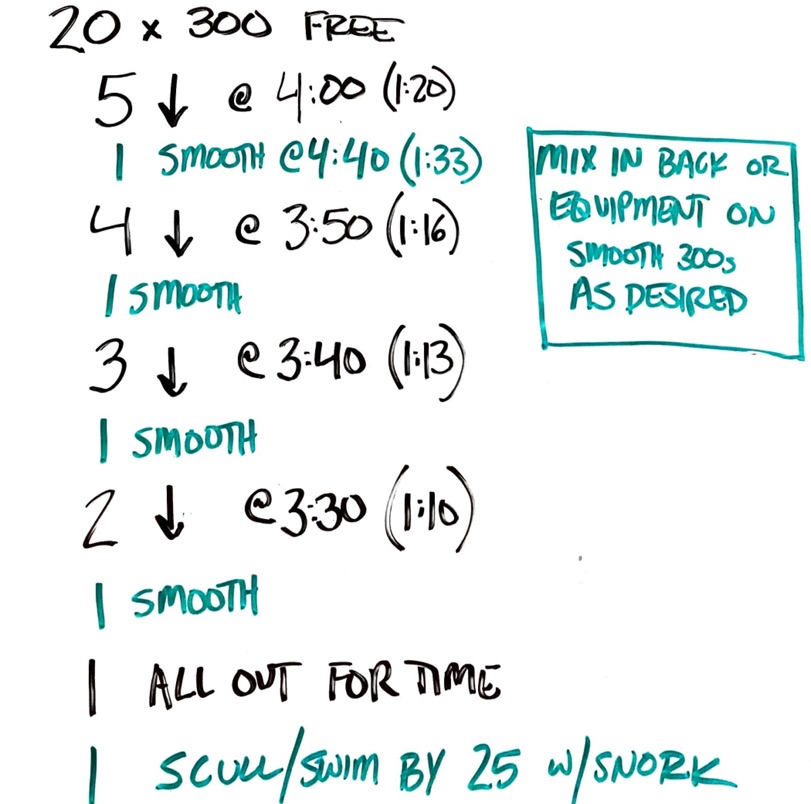 20 x 300 FREE
5 ↓ @ 4:00 (1:20)
1 SMOOTH @ 4:40 (1:33)
4 ↓ @ 3:50 (1:16)
1 SMOOTH
3 ↓ @ 3:40 (1:13)
1 SMOOTH
2 ↓ @ 3:30 (1:10)
1 SMOOTH
1 ALL OUT FOR TIME
1 SCULL/SWIM BY 25 W/SNORK
MIX IN BACK OR
EQUIPMENT ON
SMOOTH 300s
AS DESIRED